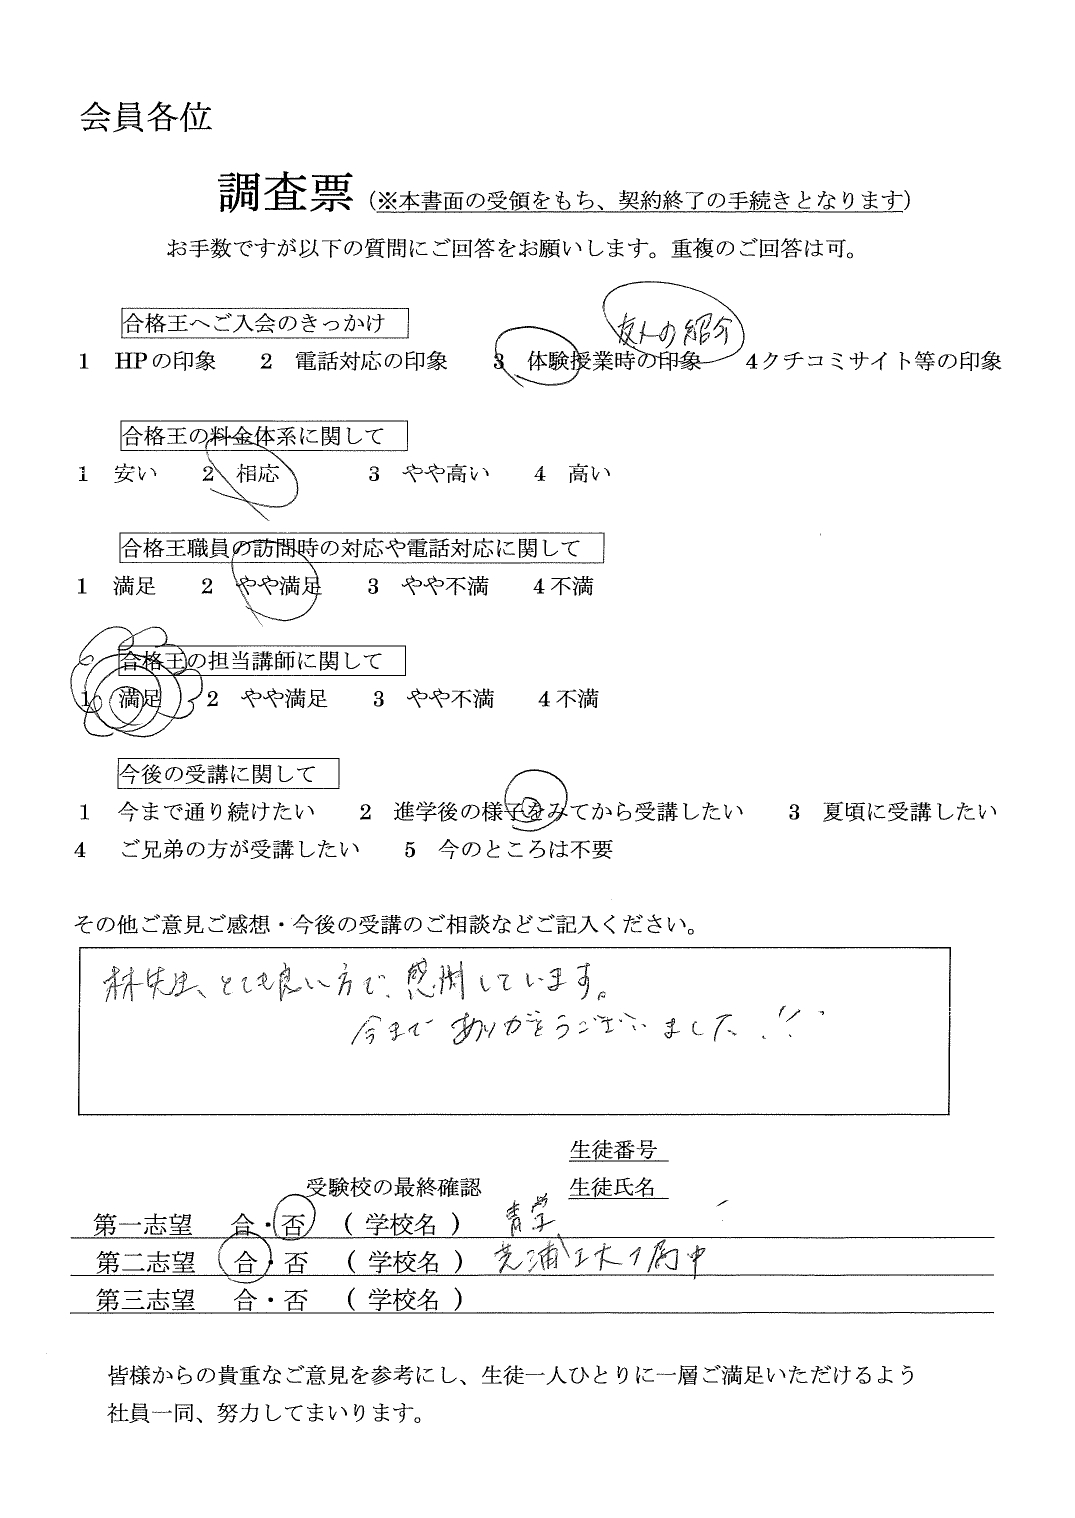 会員各位
調査票(※本書面の受領をもち、契約終了の手続きとなります)
お手数ですが以下の質問にご回答をお願いします。重複のご回答は可。
合格王へご入会のきっかけ
友人の紹介
1 HPの印象 2 電話対応の印象 3 体験授業時の印象 4クチコミサイト等の印象
合格王の料金体系に関して
1 安い 2 相応 3 やや高い 4 高い
合格王職員の訪問時の対応や電話対応に関して
1 満足 2 やや満足 3 やや不満 4不満
合格王の担当講師に関して
1 満足 2 やや満足 3 やや不満 4不満
今後の受講に関して
1 今まで通り続けたい 2 進学後の様子をみてから受講したい 3 夏頃に受講したい
4 ご兄弟の方が受講したい 5 今のところは不要
その他ご意見ご感想・今後の受講のご相談などご記入ください。
林先生、とても良い方で、感謝しています。
今まで ありがとうございました!!
生徒番号
受験校の最終確認 生徒氏名
第一志望 合・否 (学校名) 青学
第二志望 合・否 (学校名) 芝浦工大付属中
第三志望 合・否 (学校名)
皆様からの貴重なご意見を参考にし、生徒一人ひとりに一層ご満足いただけるよう
社員一同、努力してまいります。